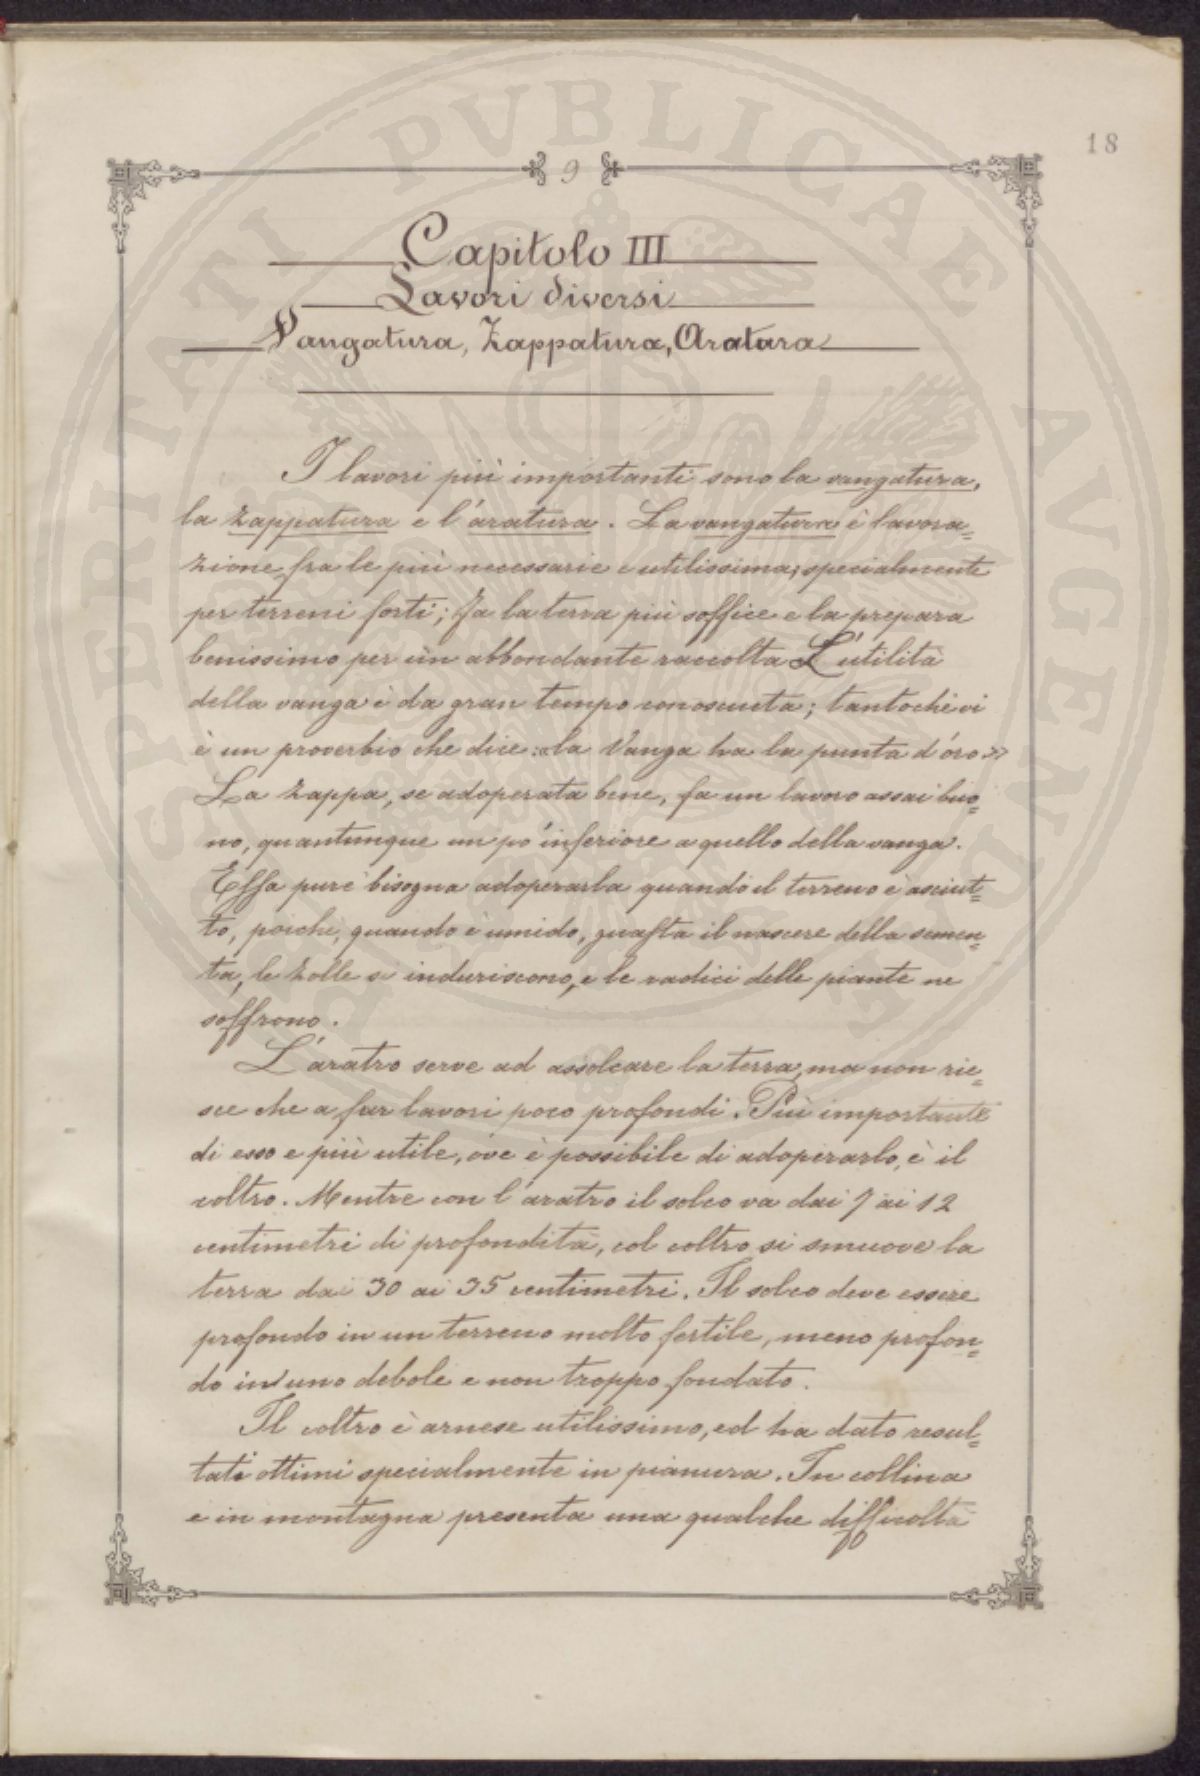 18
9
Capitolo III
Lavori diversi
Vangatura, Zappatura, Aratura
I lavori più importanti sono la vangatura,
la zappatura e l'aratura. La vangatura è lavora=
zione fra le più necessarie e utilissima, specialmente
per terreni forti; fa la terra più soffice e la prepara
benissimo per un abbondante raccolta L'utilità
della vanga è da gran tempo conosciuta; tantochè vi
è un proverbio che dice: «la Vanga ha la punta d'oro»
La zappa, se adoperata bene, fa un lavoro assai buo=
no, quantunque un po' inferiore a quello della vanga.
Essa pure bisogna adoperarla quando il terreno è asciut=
to, poichè, quando è umido, guasta il nascere della semen=
ta, le zolle si induriscono, e le radici delle piante ne
soffrono.
L'aratro serve ad assolcare la terra, ma non rie=
sce che a far lavori poco profondi. Più importante
di esso e più utile, ove è possibile di adoperarlo, è il
coltro. Mentre con l'aratro il solco va dai 7 ai 12
centimetri di profondità, col coltro si smuove la
terra dai 30 ai 35 centimetri. Il solco deve essere
profondo in un terreno molto fertile, meno profon=
do in uno debole e non troppo fondato.
Il coltro è arnese utilissimo, ed ha dato resul=
tati ottimi specialmente in pianura. In collina
e in montagna presenta una qualche difficoltà
SPERITATI PVBLICAE AVGENDAE